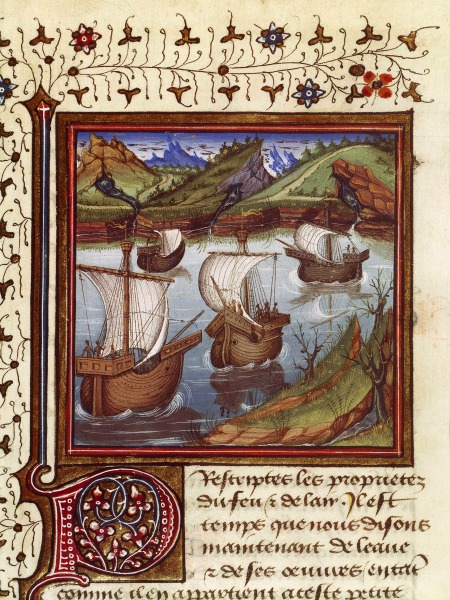 DEscriptes les proprietez
du feu & de lair. Il est
temps que nous disons
maintenant de leaue
& de ses oeuures entāt
comme il en appartient a ceste petite